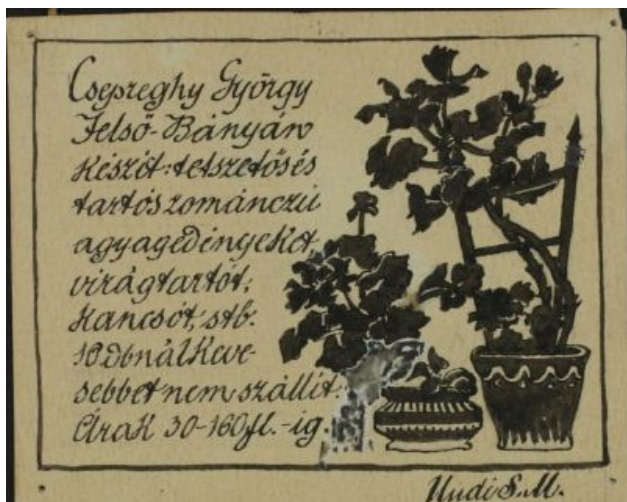 Csepreghy György
Felső-Bányán
készít: tetszetős és
tartós zománczú
agyagedényeket,
virágtartót,
kancsót, stb.
10. dbnál keve-
sebbet nem szállít.
Árak 30-160 fl.-ig.
Undi S. M.